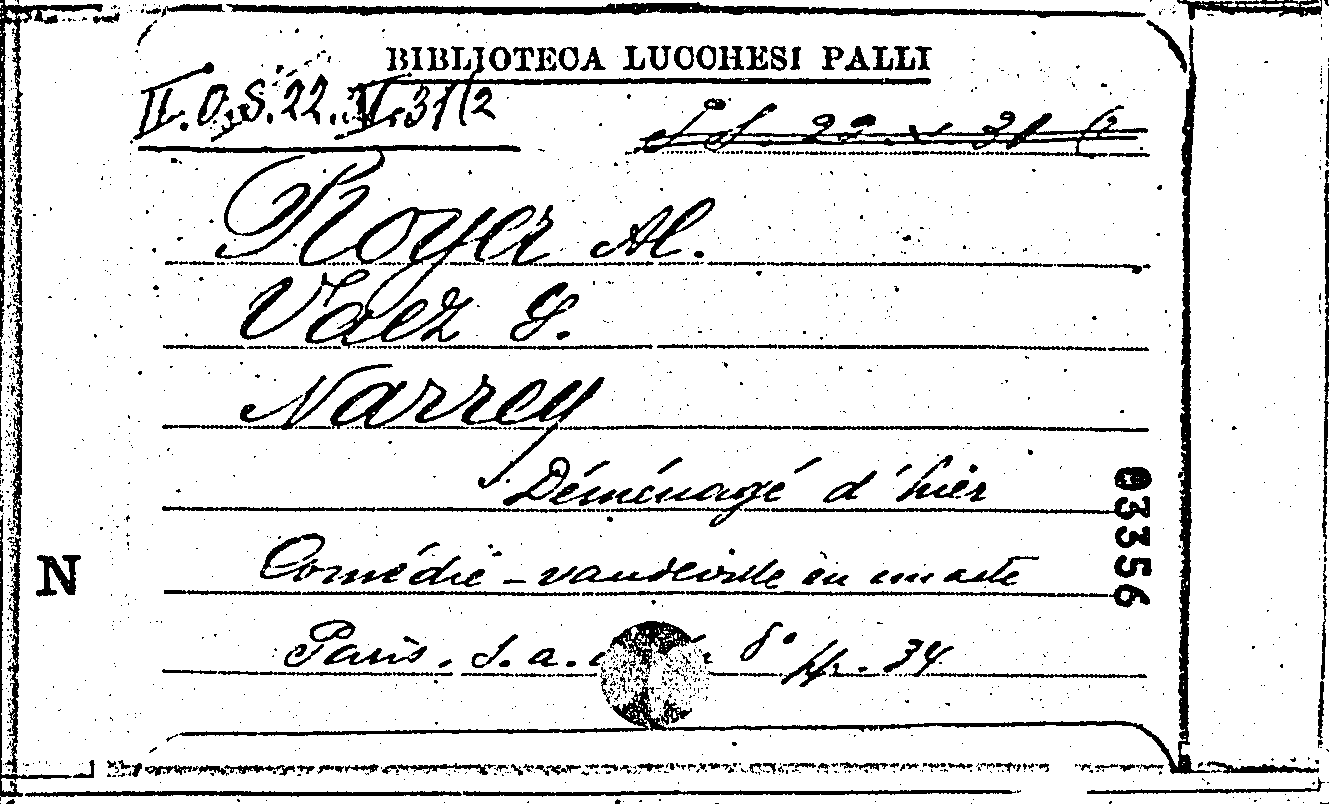 BIBLIOTECA LUCCHESI PALLI
II.O.S.22.VI.31(2
Royer Al.
Vaez G.
Narrey
Déménagé d'hier
Comédie-vaudeville en un acte
Paris. s.a. in 8° pp. 34
N
03356